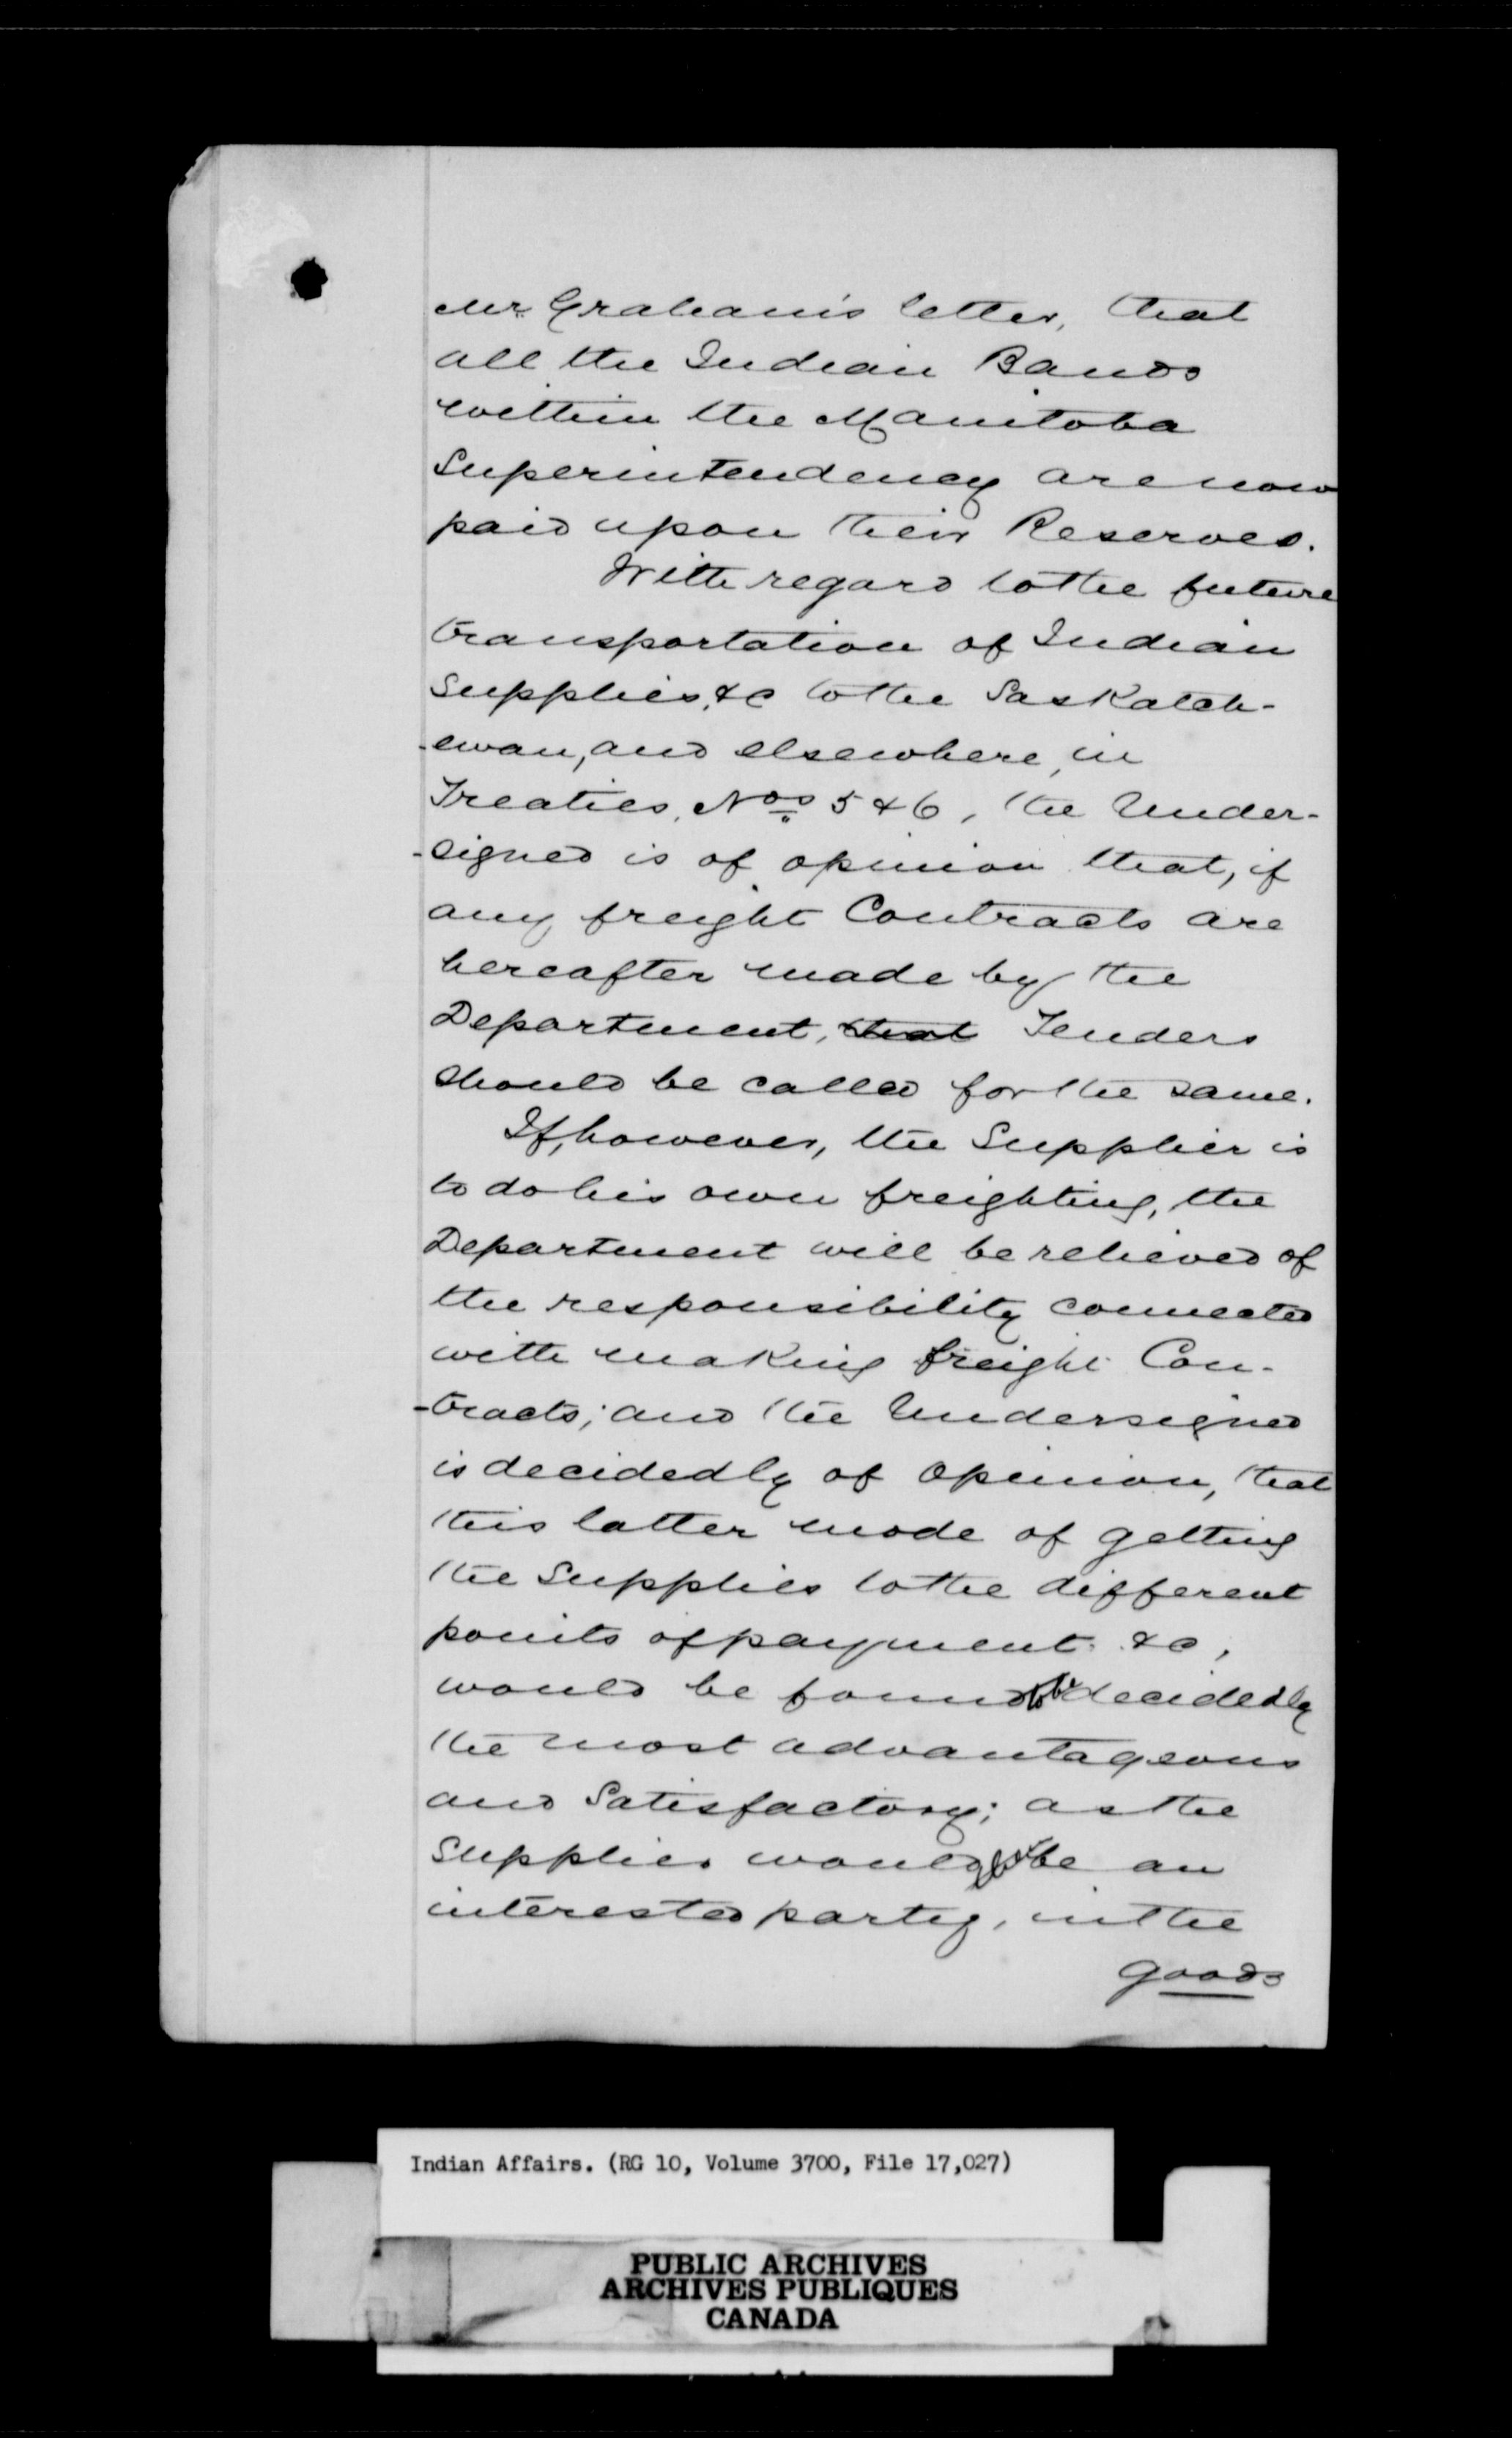 Mr. Graham's letter, that
all the Indian Bands
within the Manitoba
Superintendency are now
paid upon their Reserves.
With regard to the future
transportation of Indian
Supplies, &c to the Saskatch-
-ewan, and elsewhere, in
Treaties, Nos 5 & 6, the Under-
-signed is of opinion that, if
any freight Contracts are
hereafter made by the
Department, that Tenders
should be called for the same.
If, however, the Supplier is
to do his own freighting, the
Department will be relieved of
the responsibility connected
with making freight Con-
-tracts; and the Undersigned
is decidedly of Opinion, that
this latter mode of getting
the Supplies to the different
points of payment &c,
would be found decidedly
the most advantageous
and Satisfactory; as the
Supplier would be an
interested party, in the
goods
Indian Affairs. (RG 10, Volume 3700, File 17,027)
PUBLIC ARCHIVES
ARCHIVES PUBLIQUES
CANADA